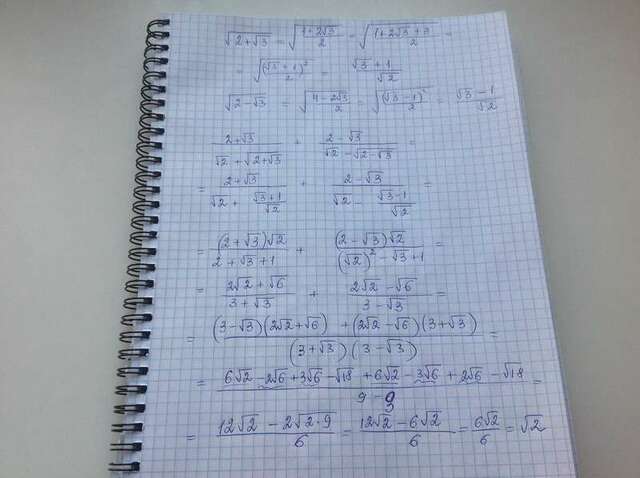 √2+√3 = √(1+2√3/2) = √(1+2√3+3/2) =
= √((√3+1)²/2) = √3+1/√2
√2-√3 = √(4-2√3/2) = √((√3-1)²/2) = √3-1/√2
2+√3/√2+√2+√3 + 2-√3/√2-√2-√3 =
= 2+√3/√2+√3+1/√2 + 2-√3/√2-√3-1/√2 =
= (2+√3)√2/2+√3+1 + (2-√3)√2/(√2)²-√3+1 =
= 2√2+√6/3+√3 + 2√2-√6/3-√3 =
= (3-√3)(2√2+√6)+(2√2-√6)(3+√3)/(3+√3)(3-√3) =
= 6√2-2√6+3√6-√18+6√2-3√6+2√6-√18/9-3 =
= 12√2-2√2·9/6 = 12√2-6√2/6 = 6√2/6 = √2